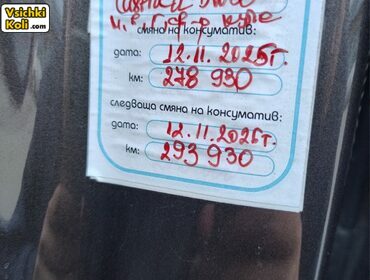 Vsichki
Koli.com
смяна на консуматив:
дата: 12.11.2025г.
км: 278 930
следваща смяна на консуматив:
дата: 12.11.2026г.
км: 293 930